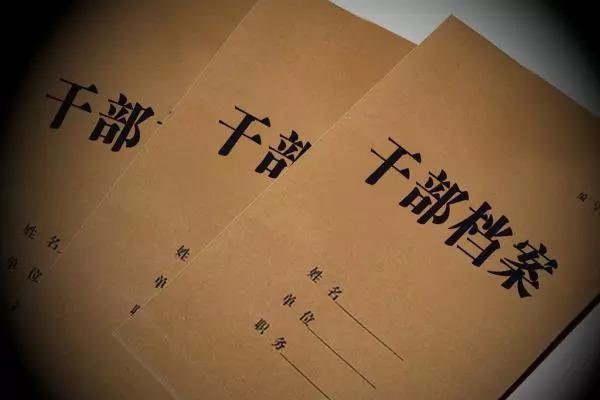 干部
姓名
单位
干部
姓
单
职
干部档案
编号
姓名
单位
职务